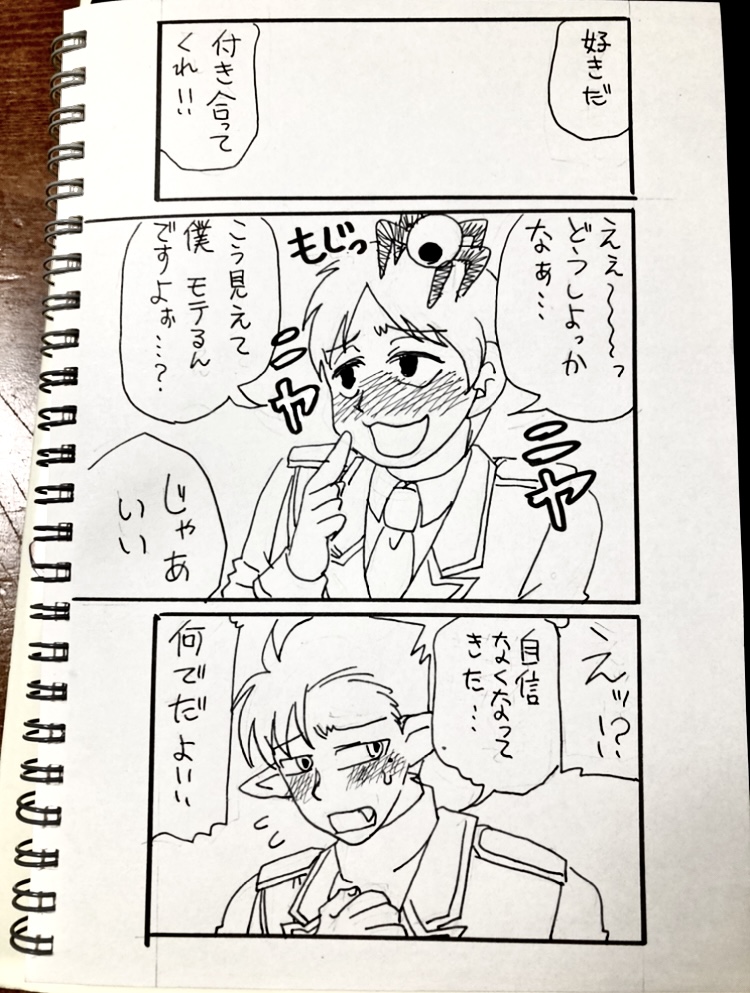 好きだ
付き合って
くれ!!
ええ~~~~っ
どうしよっか
なぁ…
もじっ
こう見えて
僕 モテるん
ですよぉ…?
ニヤ
ニヤ
じゃあ
いい
えッ!?
自信
なくなって
きた…
何でだよ!!